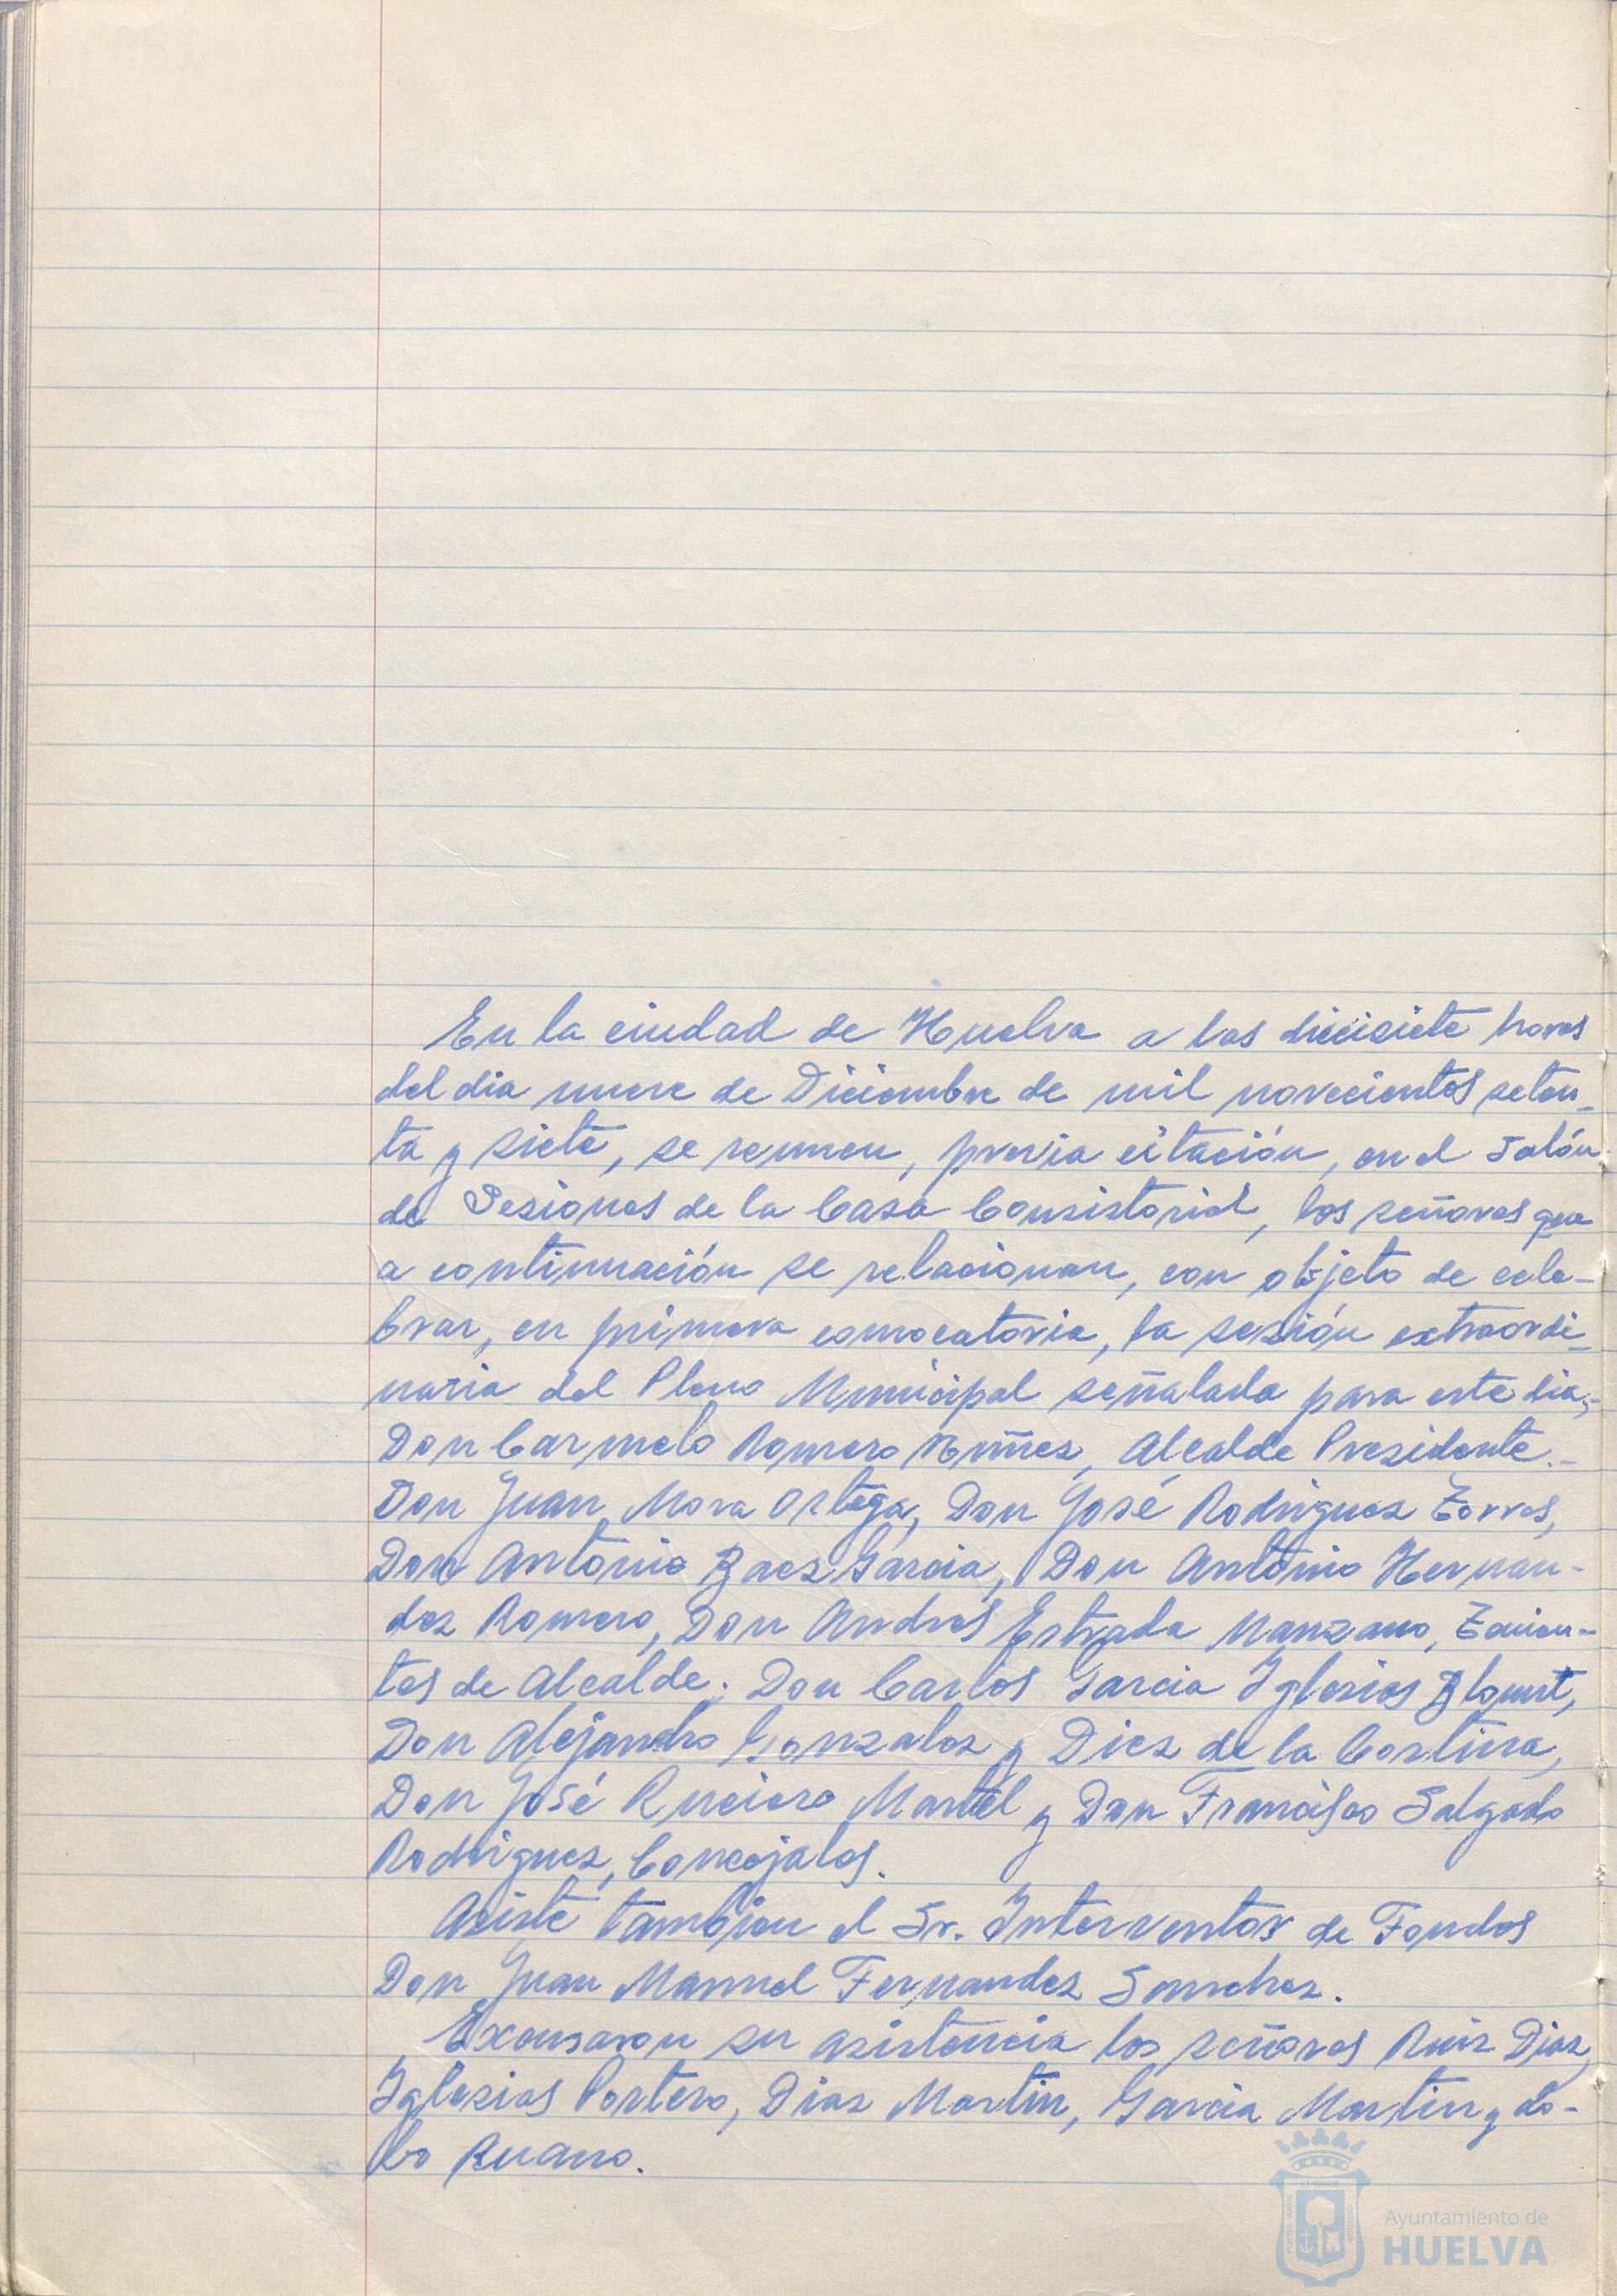 En la ciudad de Huelva a las diecisiete horas
del dia nueve de Diciembre de mil novecientos seten-
ta y siete, se reunen, previa citación, en el Salón
de Sesiones de la Casa Consistorial, los señores que
a continuación se relacionan, con objeto de cele-
brar, en primera convocatoria, la sesión extraordi-
naria del Pleno Municipal señalada para este dia;-
Don Carmelo Romero Nuñez, Alcalde Presidente.-
Don Juan Mora Ortega, Don José Rodriguez Torres,
Don Antonio Baez Garcia, Don Antonio Hernan-
dez Romero, Don Andres Estrada Manzano, Tenien-
tes de Alcalde; Don Carlos Garcia Iglesias Blount,
Don Alejandro Gonzalez y Diez de la Cortina,
Don José Ruciero Martel y Don Francisco Salgado
Rodriguez, Concejales.
Asiste tambien el Sr. Interventor de Fondos
Don Juan Manuel Fernandez Sanchez.
Excusaron su asistencia los señores Ruiz Diaz,
Iglesias Portero, Diaz Martin, Garcia Martin y Lo-
bo Ruano.
Ayuntamiento de
HUELVA